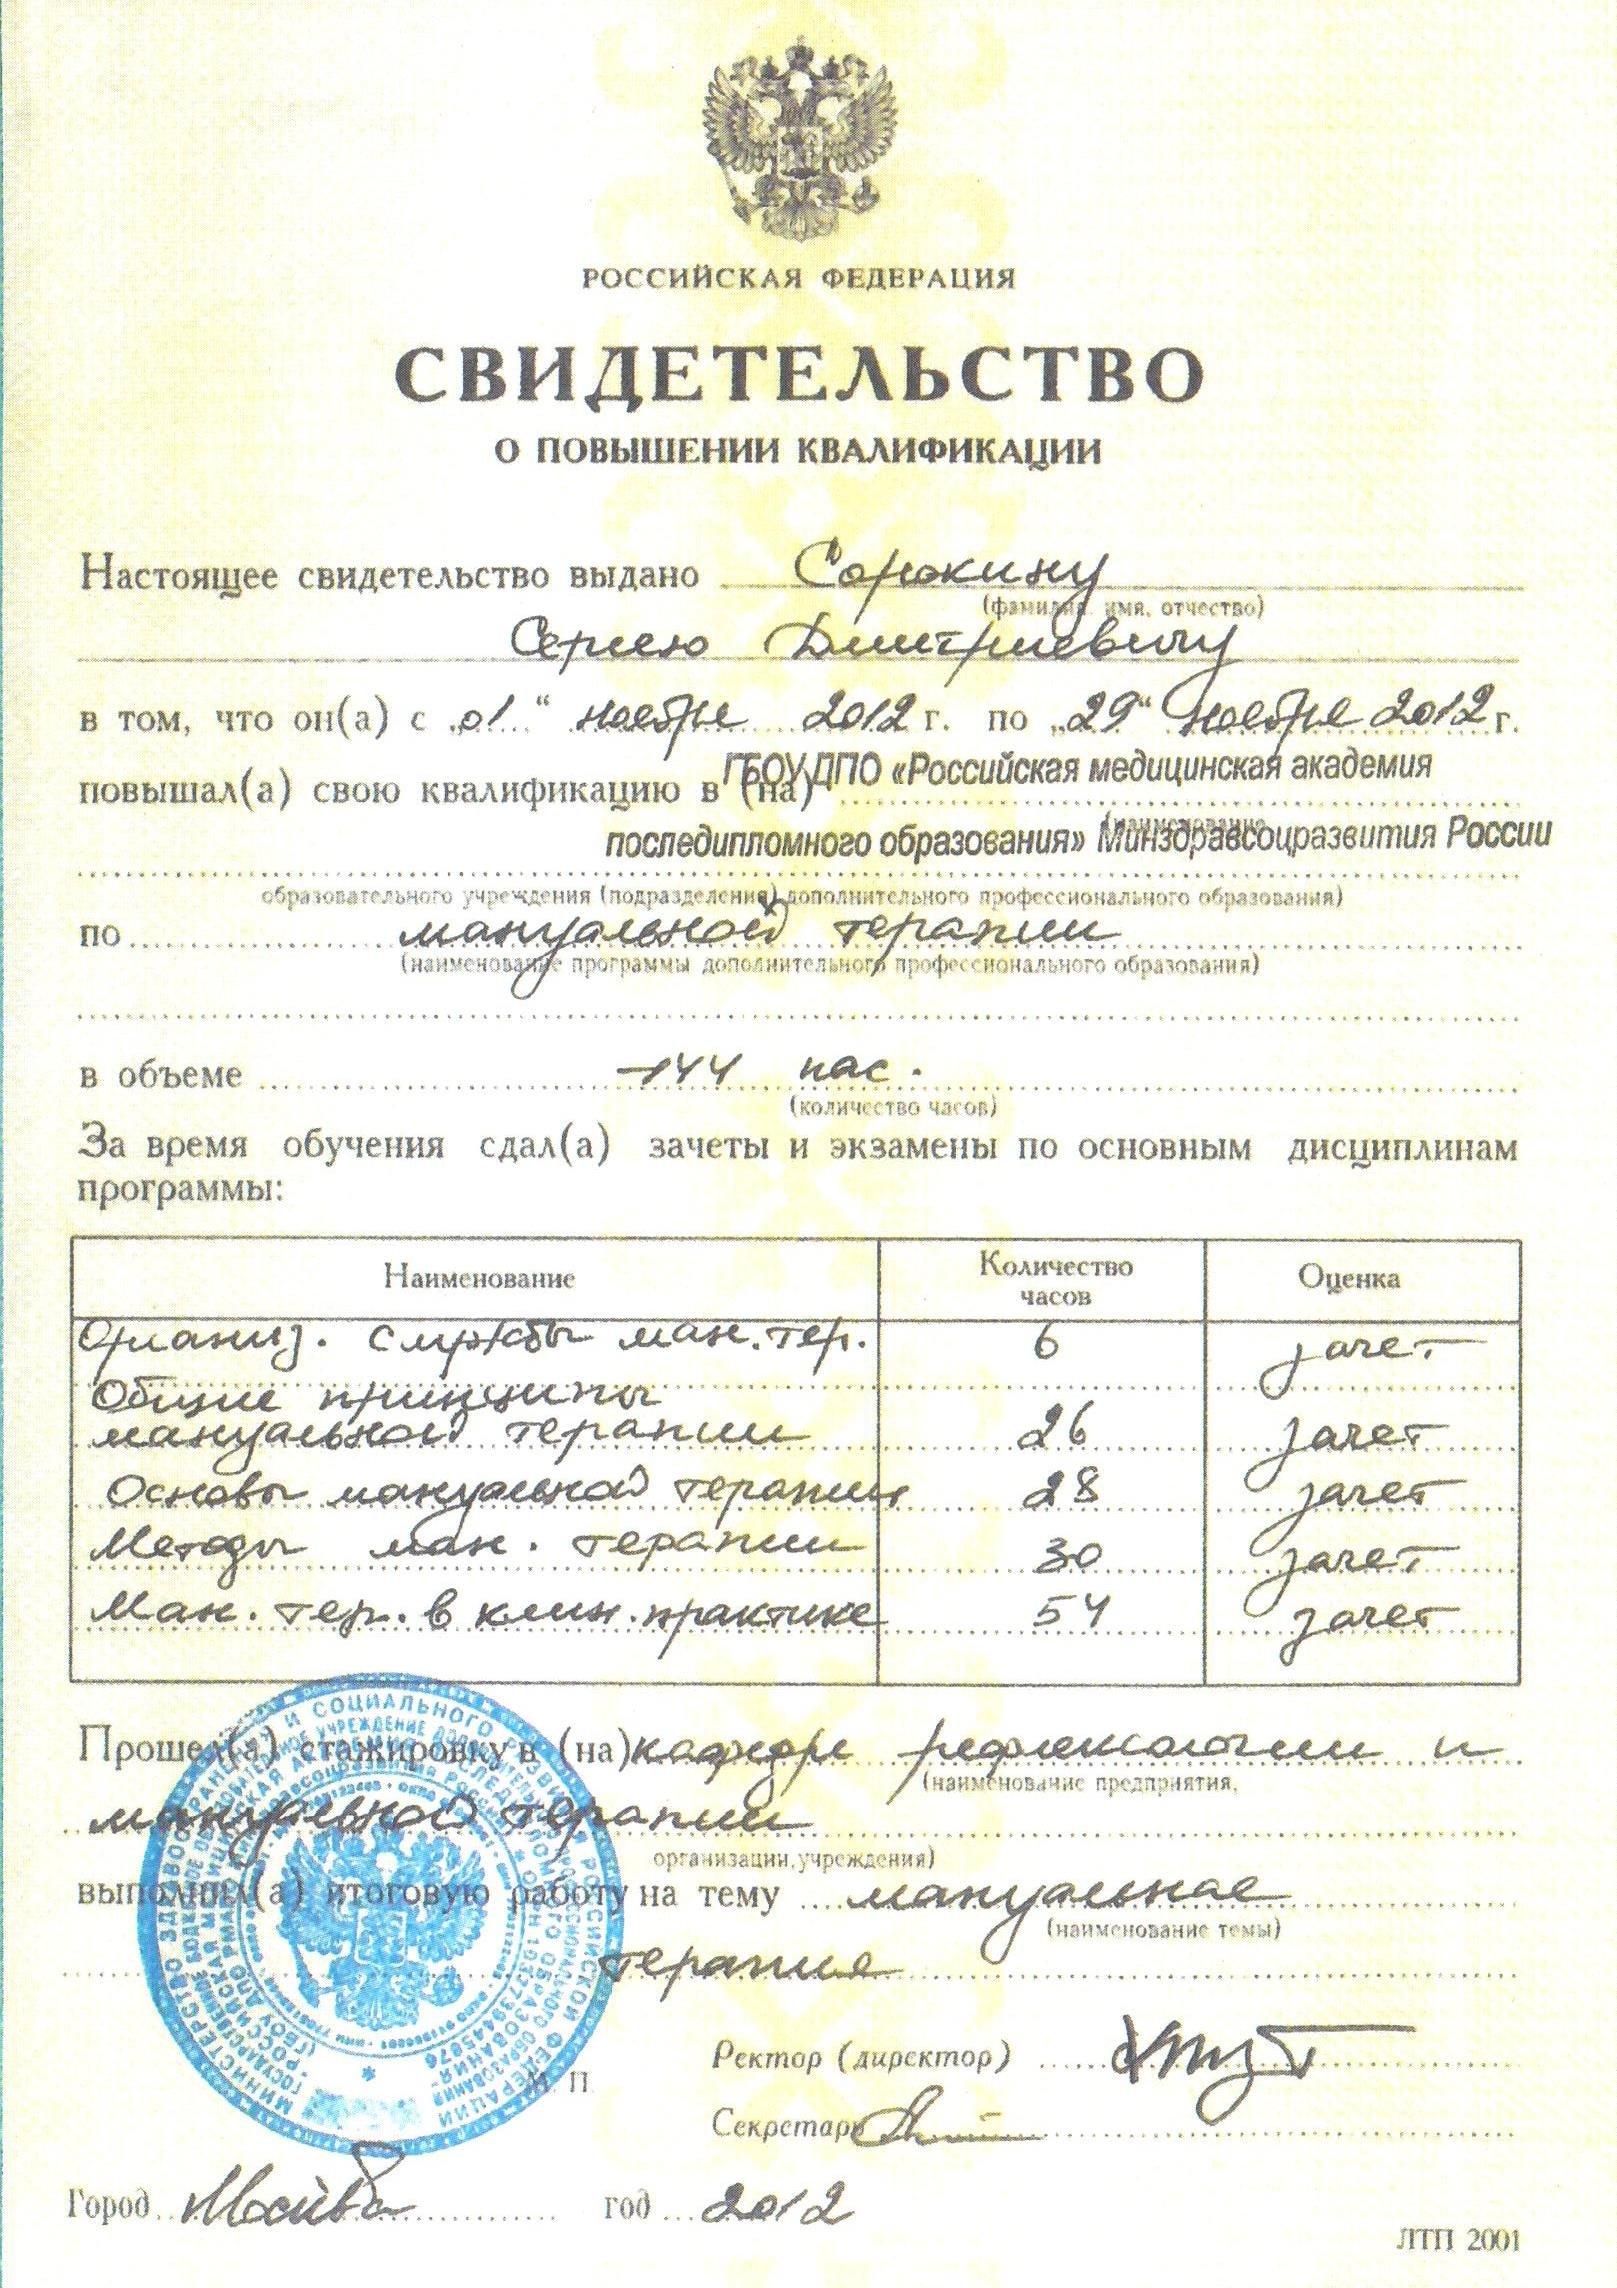 РОССИЙСКАЯ ФЕДЕРАЦИЯ
СВИДЕТЕЛЬСТВО
О ПОВЫШЕНИИ КВАЛИФИКАЦИИ
Настоящее свидетельство выдано Сорокину
(фамилия, имя, отчество)
Сергею Дмитриевичу
в том, что он(а) с „01“ ноября 2012 г. по „29“ ноября 2012 г.
повышал(а) свою квалификацию в (на) ГБОУ ДПО «Российская медицинская академия
(наименование
последипломного образования» Минздравсоцразвития России
образовательного учреждения (подразделения) дополнительного профессионального образования)
по мануальной терапии
(наименование программы дополнительного профессионального образования)
в объеме 144 час.
(количество часов)
За время обучения сдал(а) зачеты и экзамены по основным дисциплинам
программы:
Наименование Количество часов Оценка
Организ. службы ман. тер. 6 зачет
Общие принципы
мануальной терапии 26 зачет
Основы мануальной терапии 28 зачет
Методы ман. терапии 30 зачет
Ман. тер. в клин. практике 54 зачет
Прошел(а) стажировку в (на) кафедре рефлексологии и
(наименование предприятия,
мануальной терапии
организации, учреждения)
выполнил(а) итоговую работу на тему мануальная
(наименование темы)
терапия
Ректор (директор)
М. П.
Секретарь
Город Москва год 2012
ЛТП 2001
МИНИСТЕРСТВО ЗДРАВООХРАНЕНИЯ И СОЦИАЛЬНОГО РАЗВИТИЯ РОССИЙСКОЙ ФЕДЕРАЦИИ